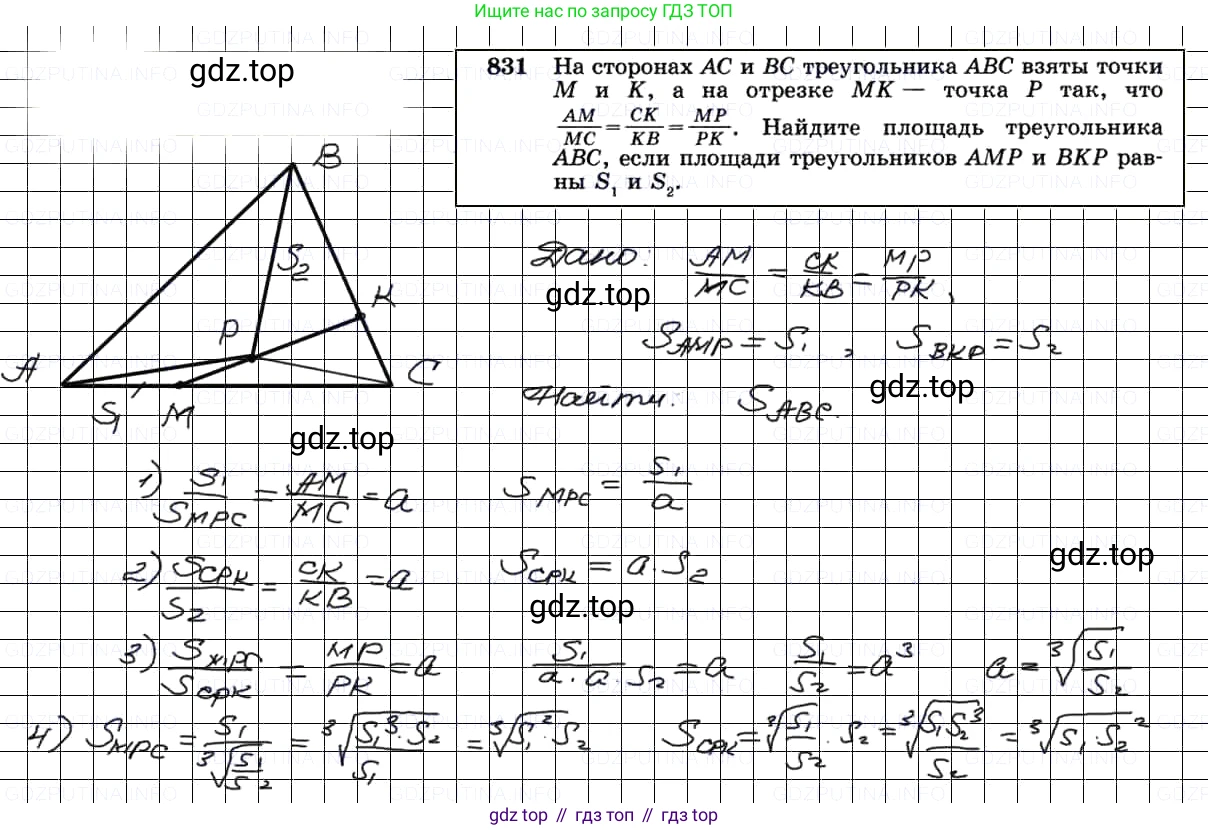 Ищите нас по запросу ГДЗ ТОП
gdz.top
831 На сторонах AC и BC треугольника ABC взяты точки
M и K, а на отрезке MK — точка P так, что
AM/MC = CK/KB = MP/PK. Найдите площадь треугольника
ABC, если площади треугольников AMP и BKP рав-
ны S₁ и S₂.
B
S₂
K
P
A
C
S₁
M
Дано: AM/MC = CK/KB = MP/PK,
gdz.top
S_AMP = S₁, S_BKP = S₂
gdz.top
Найти: S_ABC.
gdz.top
1) S₁/S_MPC = AM/MC = a   S_MPC = S₁/a
2) S_CPK/S₂ = CK/KB = a   S_CPK = a·S₂
gdz.top
gdz.top
3) S_MPC/S_CPK = MP/PK = a   S₁/(a·a·S₂) = a   S₁/S₂ = a³   a = ∛(S₁/S₂)
4) S_MPC = S₁/∛(S₁/S₂) = ∛(S₁³·S₂/S₁) = ∛(S₁²·S₂)   S_CPK = ∛(S₁/S₂)·S₂ = ∛(S₁S₂³/S₂) = ∛(S₁·S₂²)
gdz top // гдз топ // gdz top
GDZPUTINA.INFO